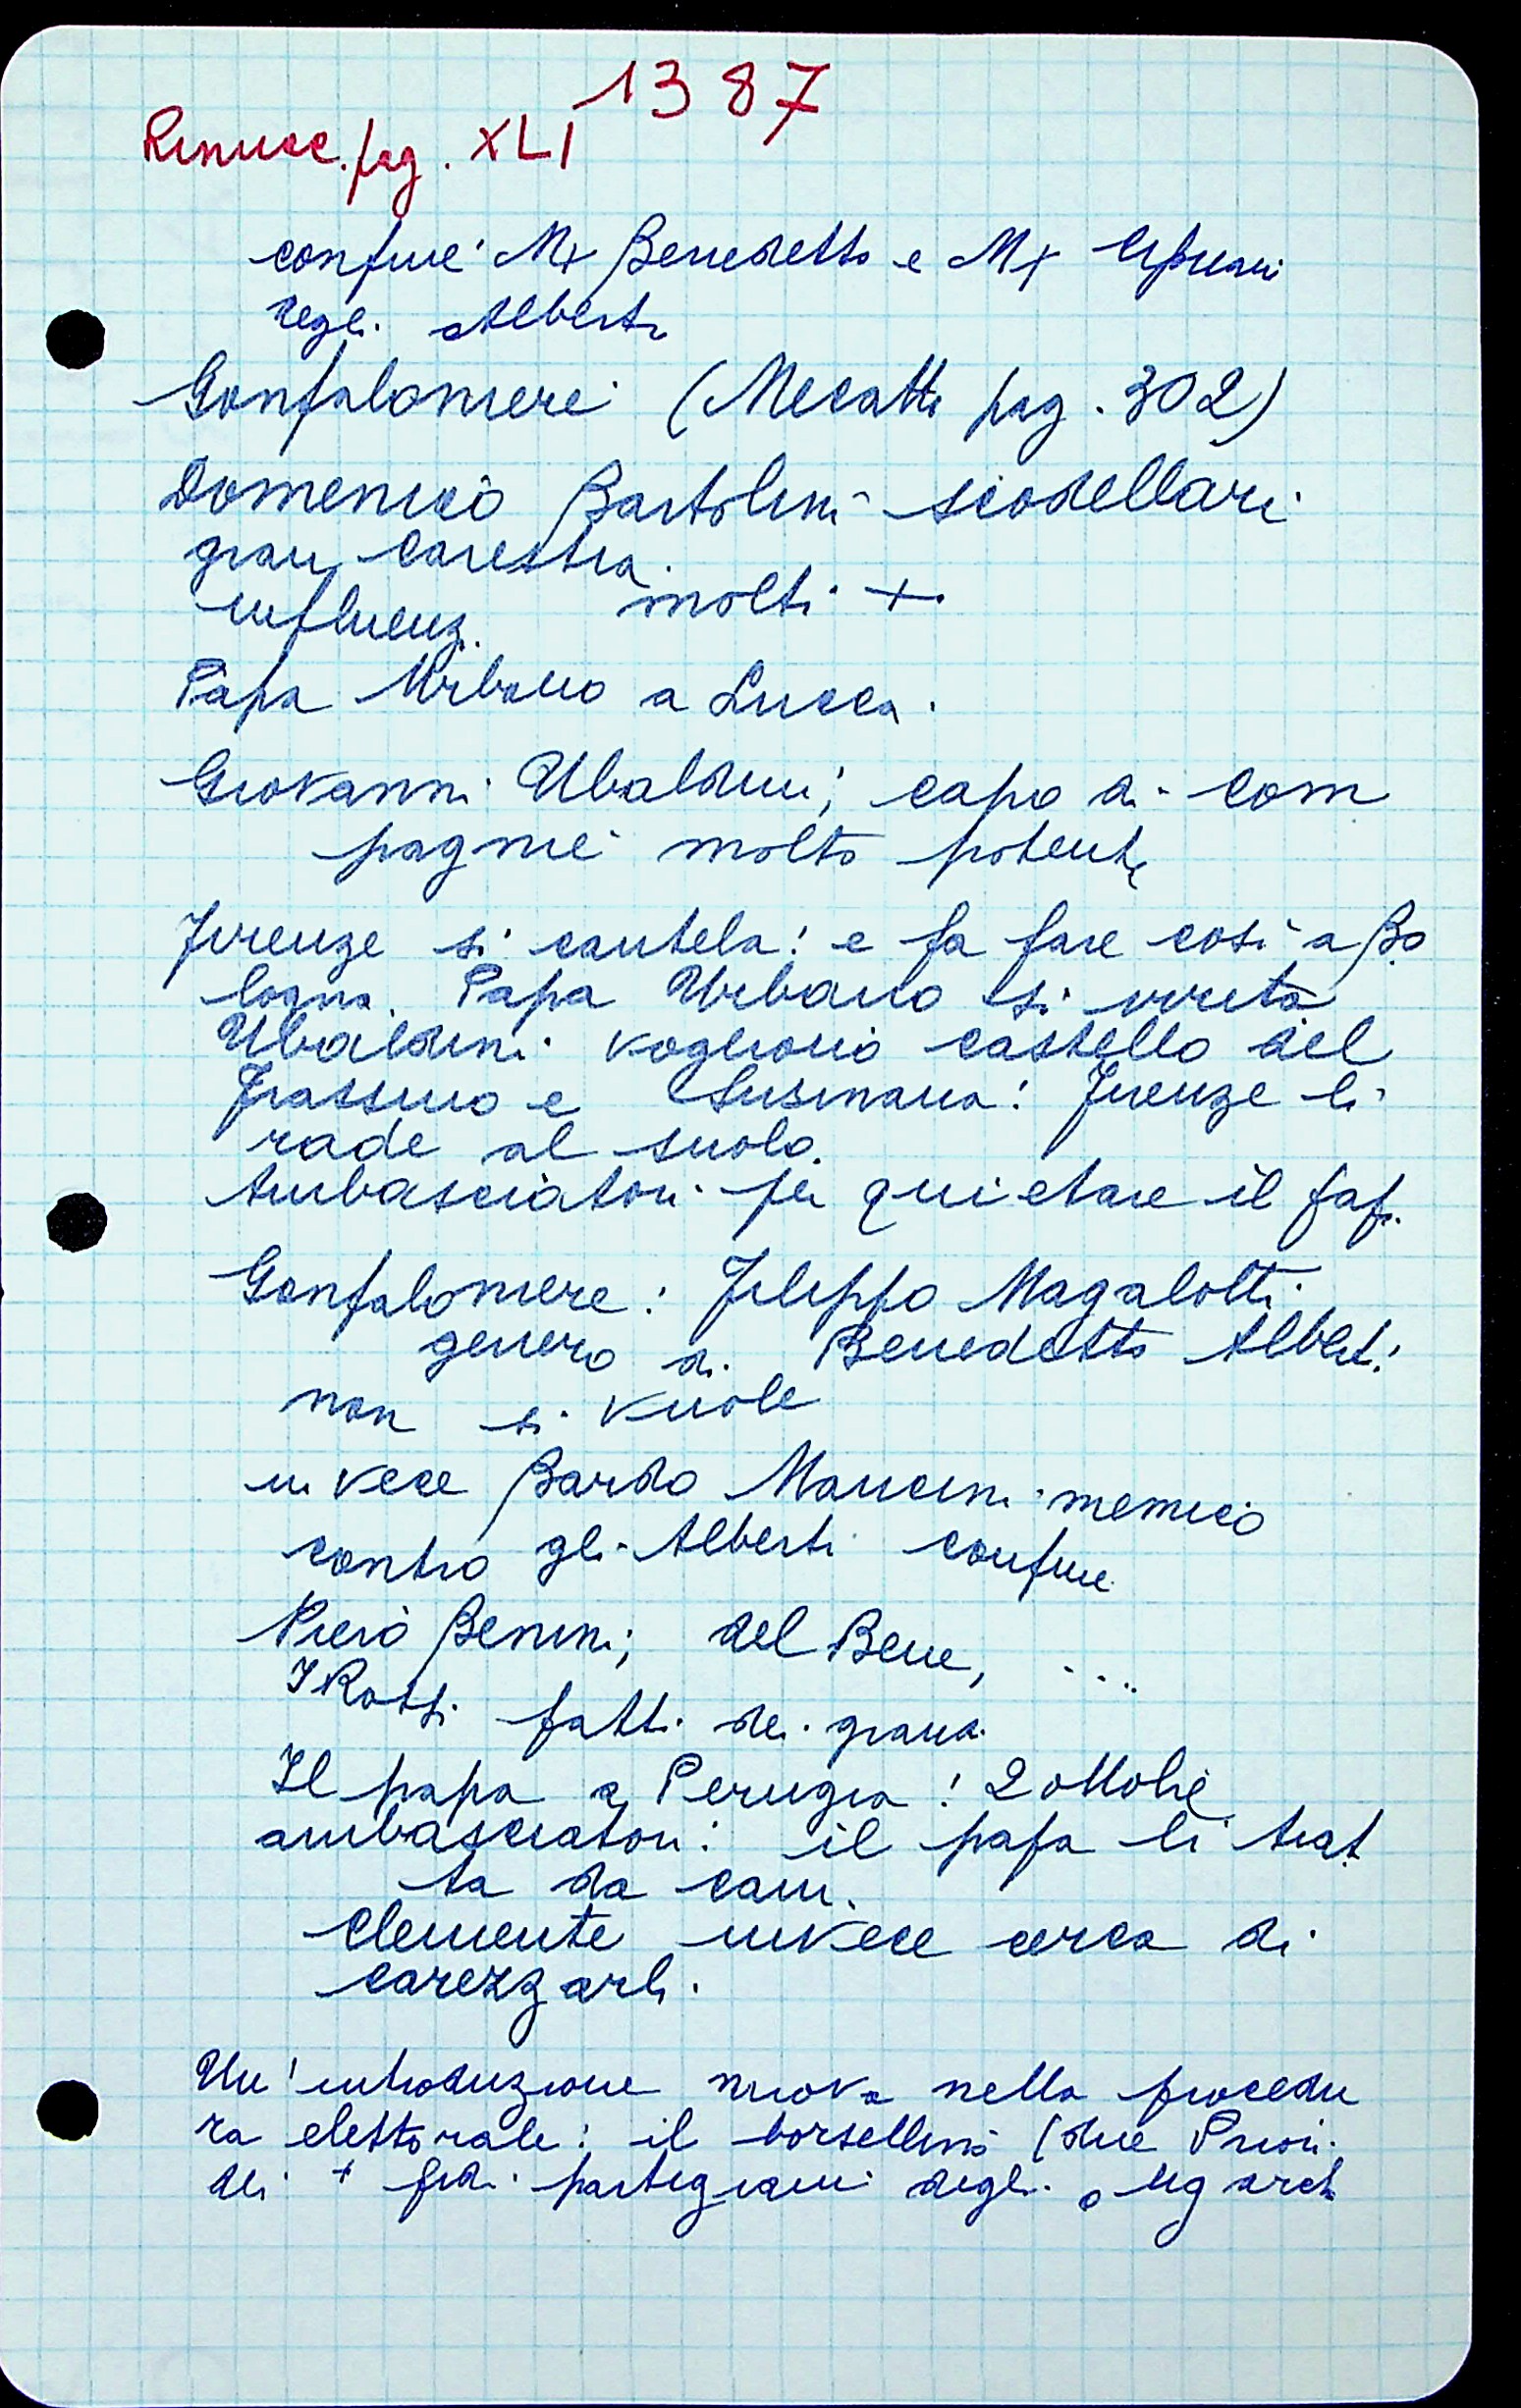 1387
Rinucc. pag. XLI
confine Mr Benedetto e Mr Cipriani
degli Alberti
Gonfaloniere (Mecatti pag. 302)
Domenico Bartolini scodellari
gran carestia.
influenz. molti +.
Papa Urbano a Lucca.
Giovanni Ubaldini; capo di com
pagnie molto potente
Firenze si cautela: e fa fare così a Bo
logna. Papa Urbano si irrita
Ubaldini vogliono castello del
Frassino e Susinana: Firenze li
rade al suolo.
Ambasciatori per quietare il pap.
Gonfaloniere: Filippo Magalotti
genero di Benedetto Alberti:
non si vuole
in vece Bardo Mancini nemico
contro gli Alberti confine
Piero Benini; del Bene, ...
I Rossi fatti dei grandi
Il papa a Perugia: 2 ottobre
ambasciatori: il papa li trat
ta da cani.
Clemente invece cerca di
carezzarli.
Un'introduzione nuova nella procedu
ra elettorale: il borsellino (due Priori
dei + fidi partigiani degli oligarch